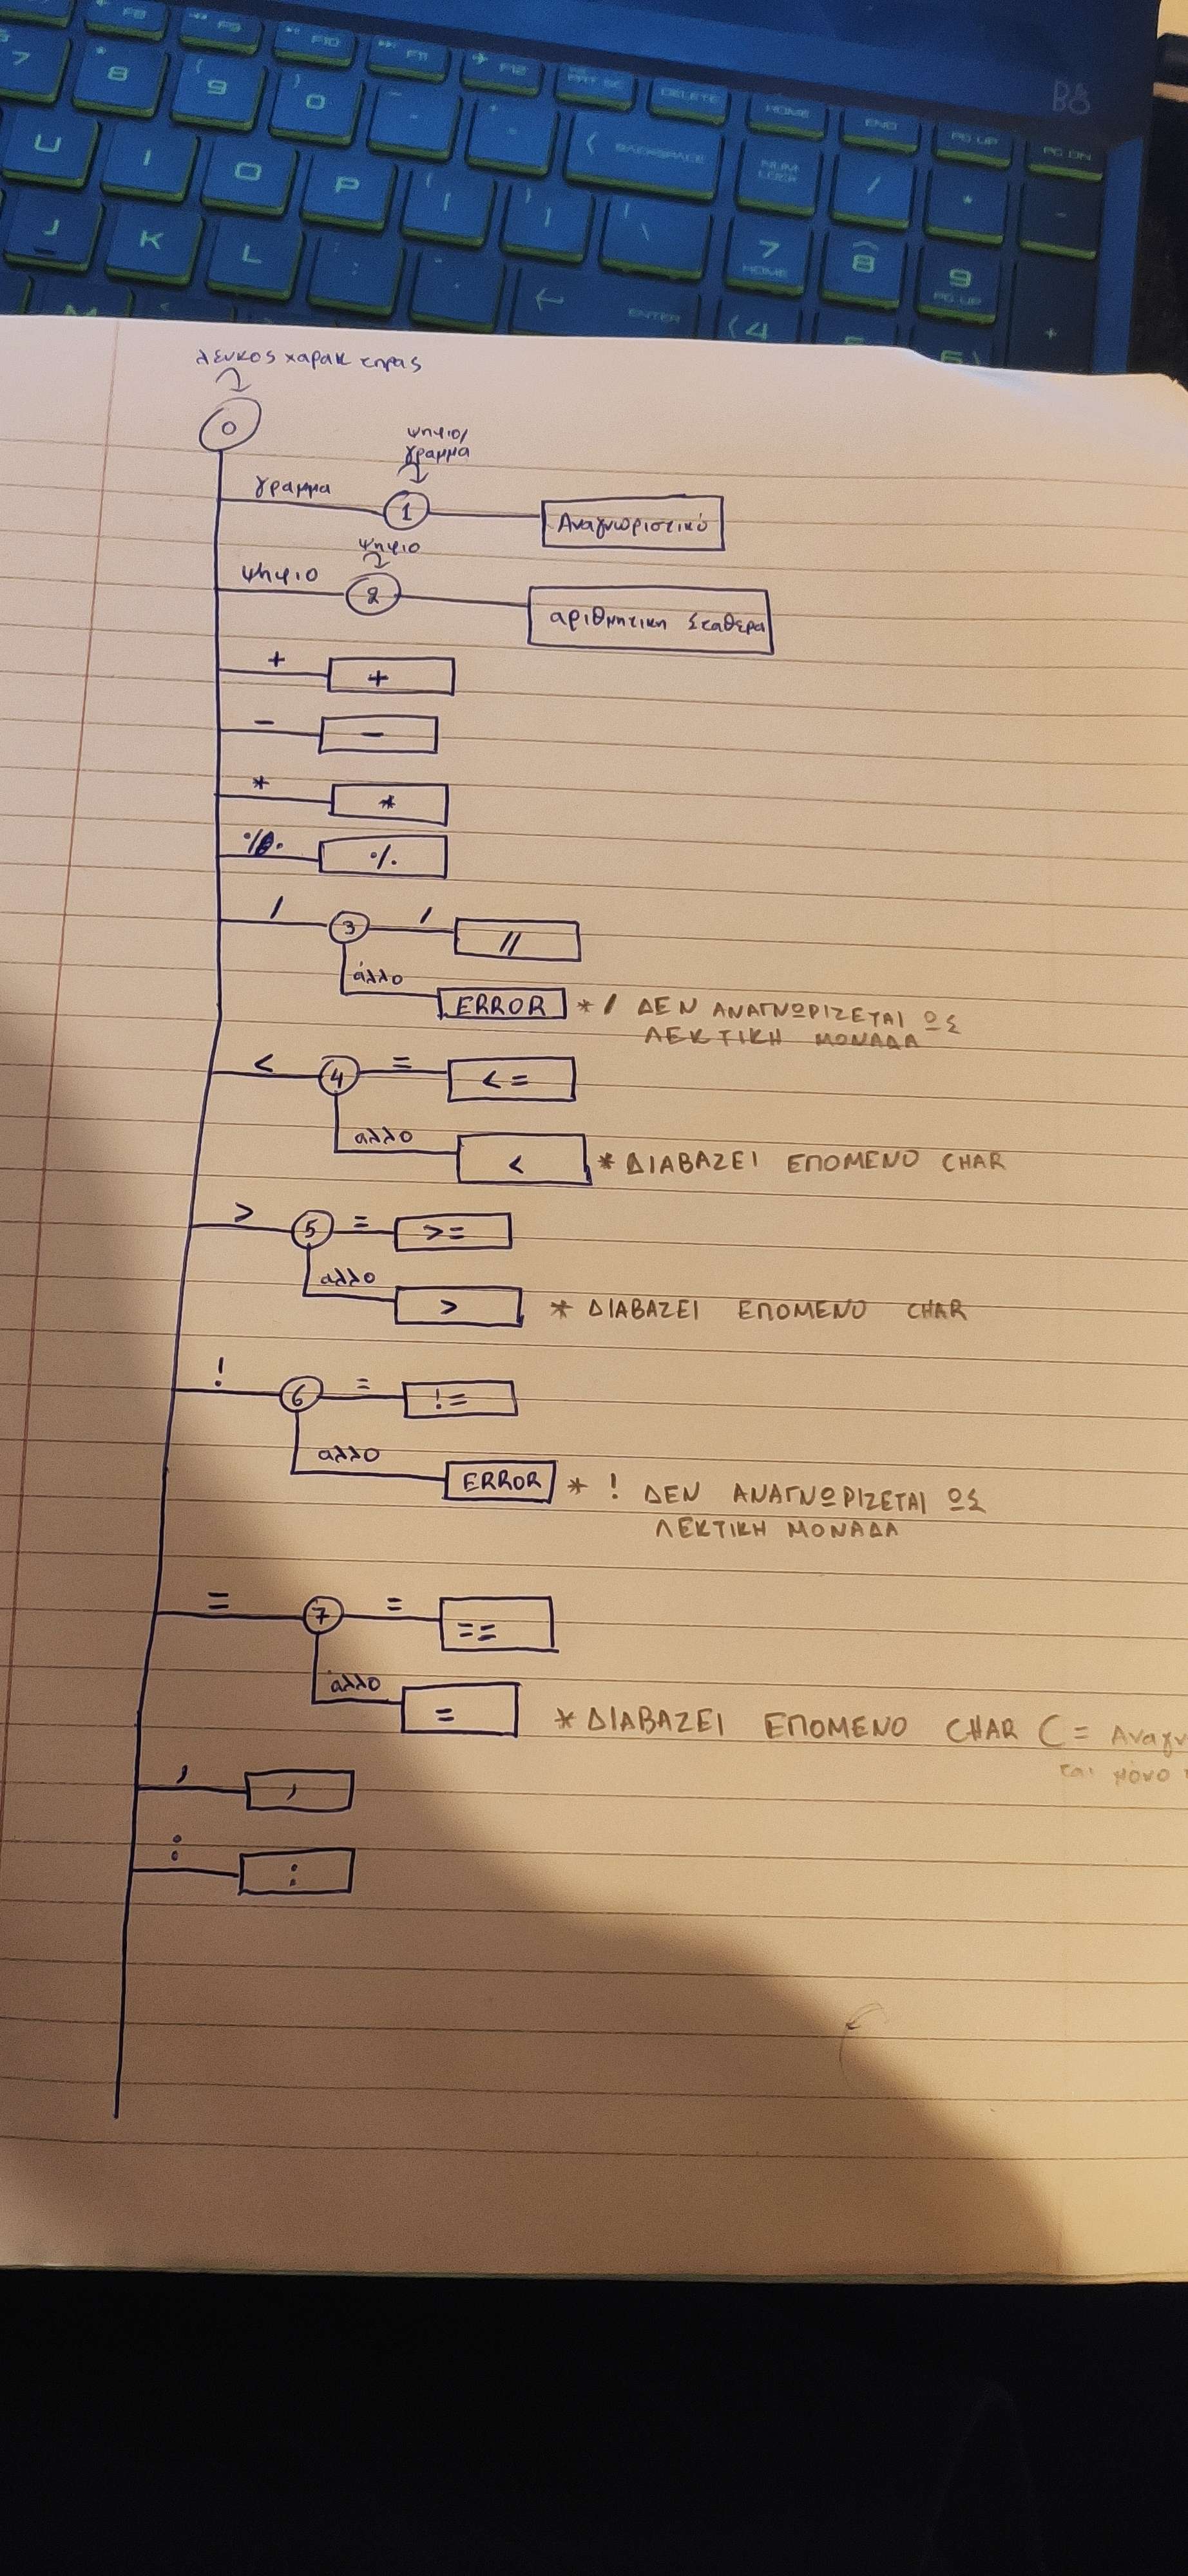 F8 F9 F10 F11 F12 PRT SC DELETE HOME END PG UP PG DN
7 * 8 ( 9 ) 0 - + = BACKSPACE NUM LOCK / * -
U I O P { [ } ] | \ 7 HOME 8 9 PG UP
J K L : ; ENTER 4 +
λευκος χαρακτηρας
0
ψηφιο/
γραμμα
γραμμα 1 Αναγνωριστικό
ψηφιο
ψηφιο 2 αριθμητικη Σταθερα
+ +
- -
* *
% %
/ 3 / //
άλλο ERROR * / ΔΕΝ ΑΝΑΓΝΩΡΙΖΕΤΑΙ ΩΣ
ΛΕΚΤΙΚΗ ΜΟΝΑΔΑ
< 4 = <=
αλλο < * ΔΙΑΒΑΖΕΙ ΕΠΟΜΕΝΟ CHAR
> 5 = >=
αλλο > * ΔΙΑΒΑΖΕΙ ΕΠΟΜΕΝΟ CHAR
! 6 = !=
αλλο ERROR * ! ΔΕΝ ΑΝΑΓΝΩΡΙΖΕΤΑΙ ΩΣ
ΛΕΚΤΙΚΗ ΜΟΝΑΔΑ
= 7 = ==
άλλο = * ΔΙΑΒΑΖΕΙ ΕΠΟΜΕΝΟ CHAR (= Αναγν
ται μόνο
, ,
: :